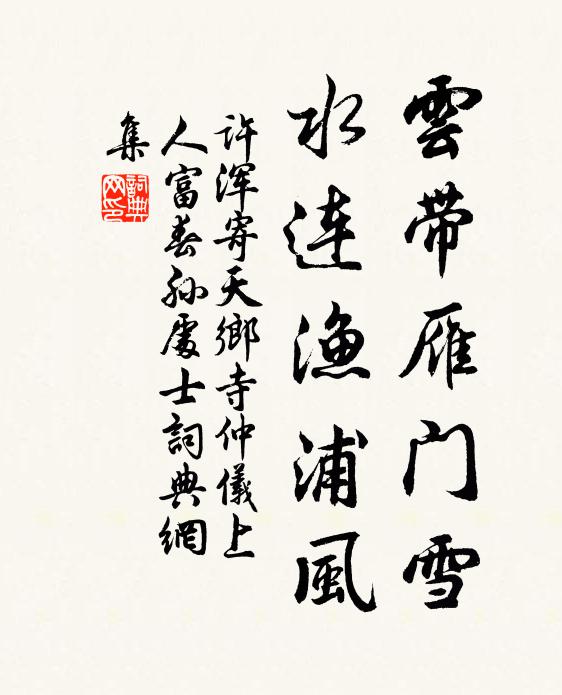 雲帶雁门雪
水連漁浦風
许浑寄天鄉寺仲儀上
人富春孙處士詞典網
集
詞典
网印